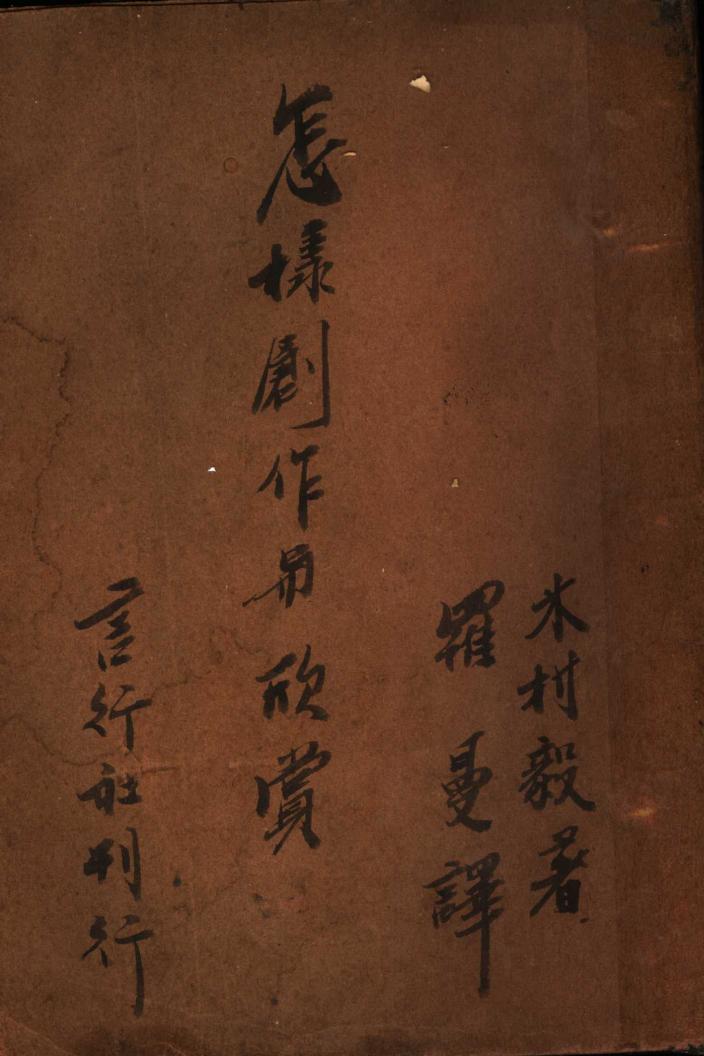 木村毅著
羅曼譯
怎樣創作与欣賞
言行社刊行